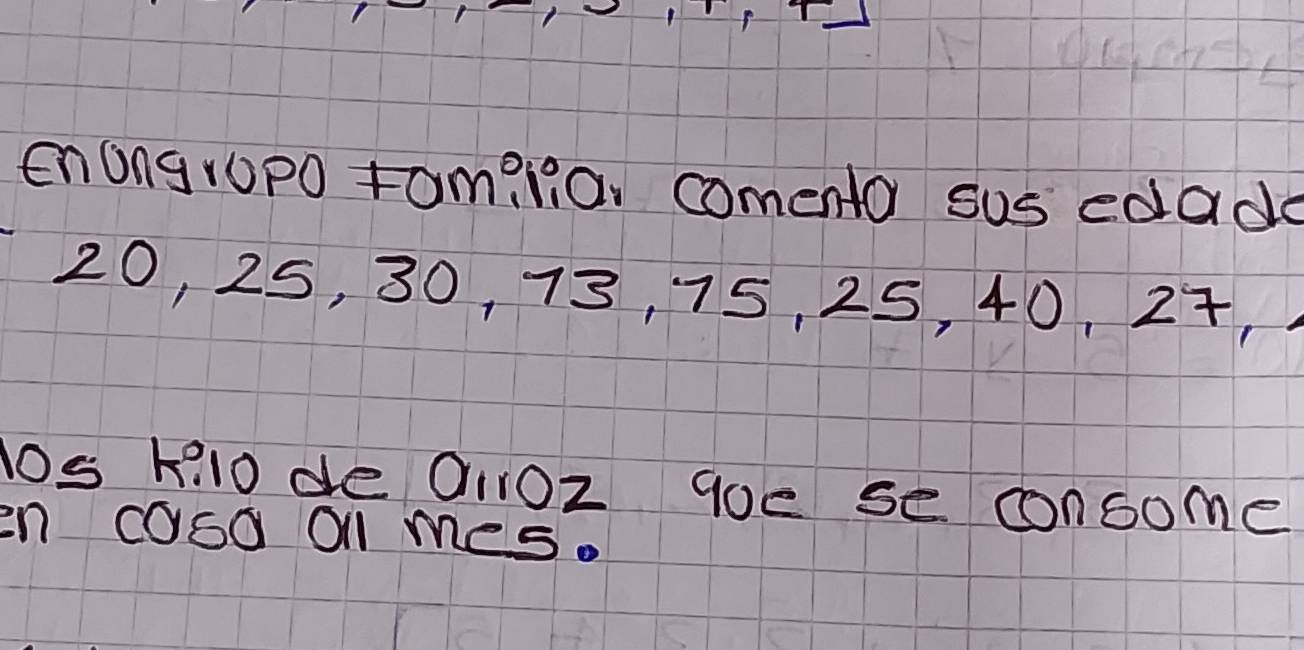 En un grupo familiar comenta sus edade
20, 25, 30, 13, 15, 25, 40, 27,
los kilo de arroz que se consome
en casa al mes.